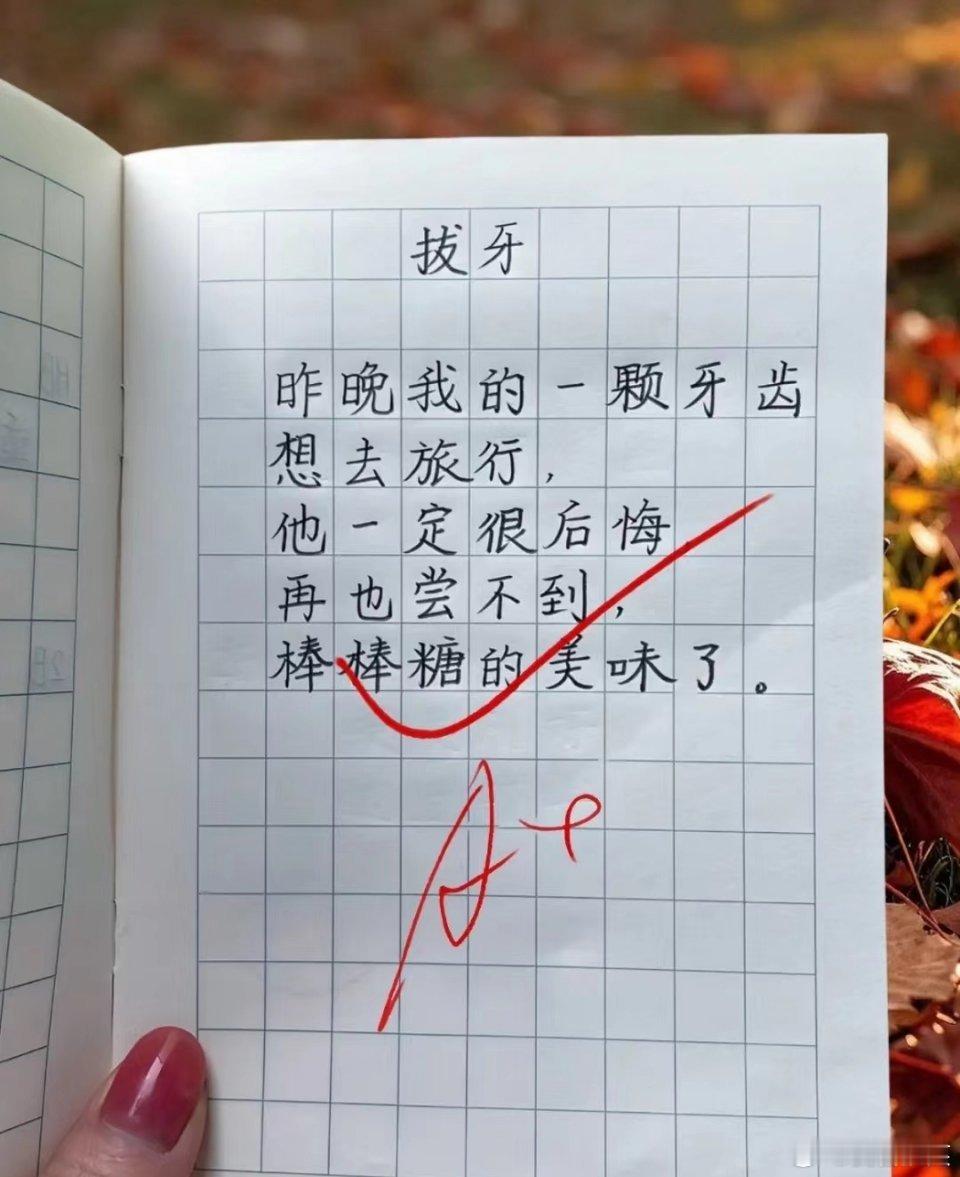 拔牙
昨晚我的一颗牙齿
想去旅行,
他一定很后悔
再也尝不到,
棒棒糖的美味了。
A+